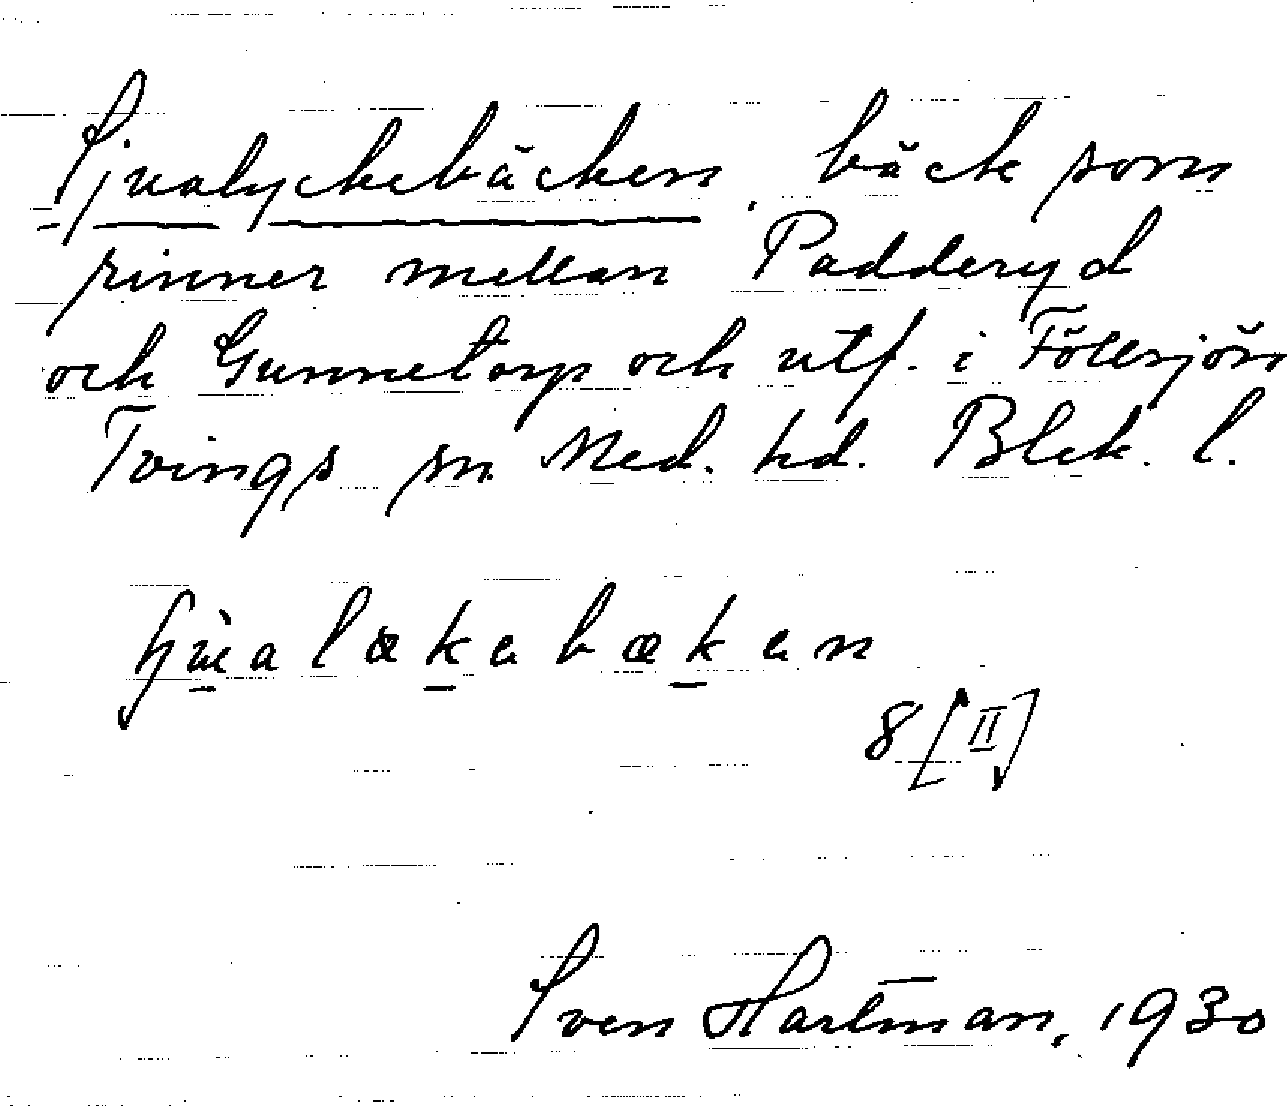 Sjualyckebäcken, bäck som
rinner mellan Padderyd
och Gunnetorp och utf. i Föllsjön
Tvings sn Med. hd. Blek. l.
8 [II]
Sven Hartman, 1930